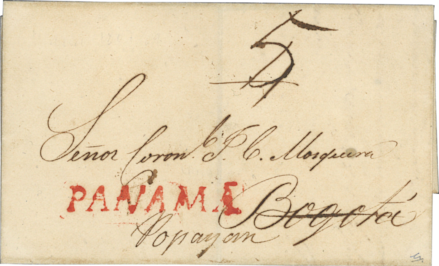 5
Señor Coronl. T. C. Mosquera
PANAMÁ
Bogotá
Popayan